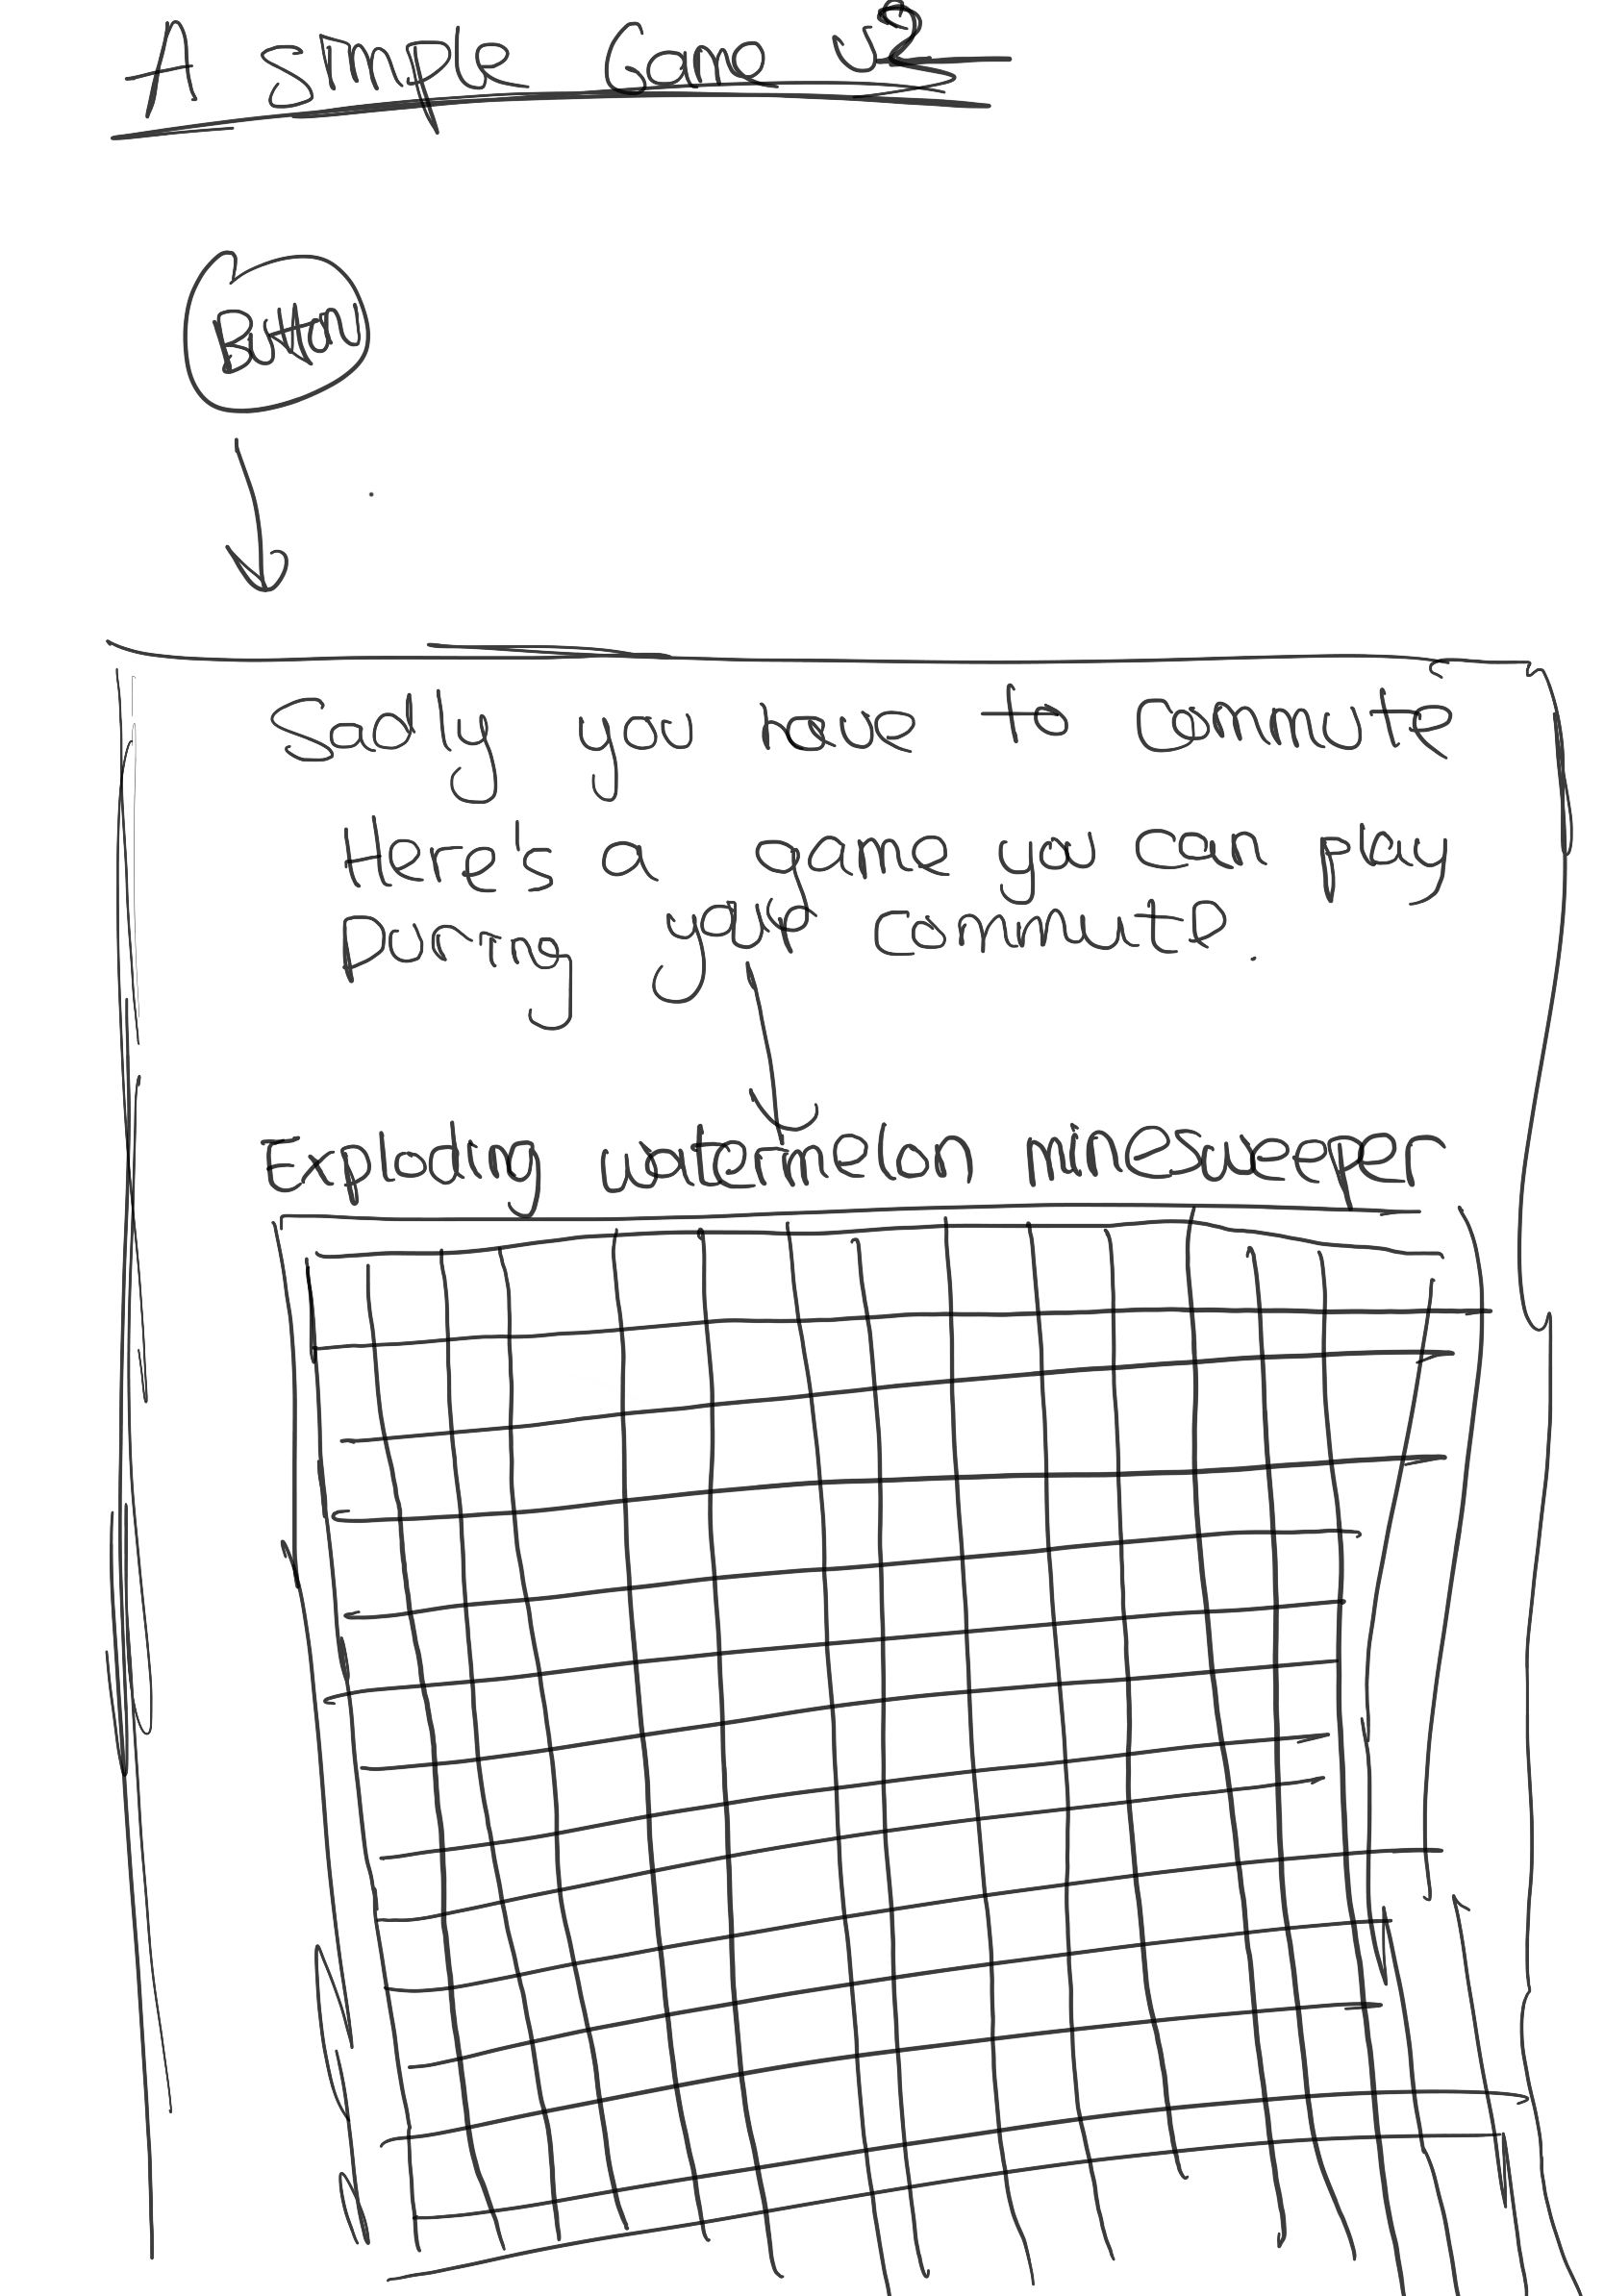 A simple Game v2
Button
Sadly you have to commute
Here's a game you can play
During your commute.
Exploding watermelon minesweeper